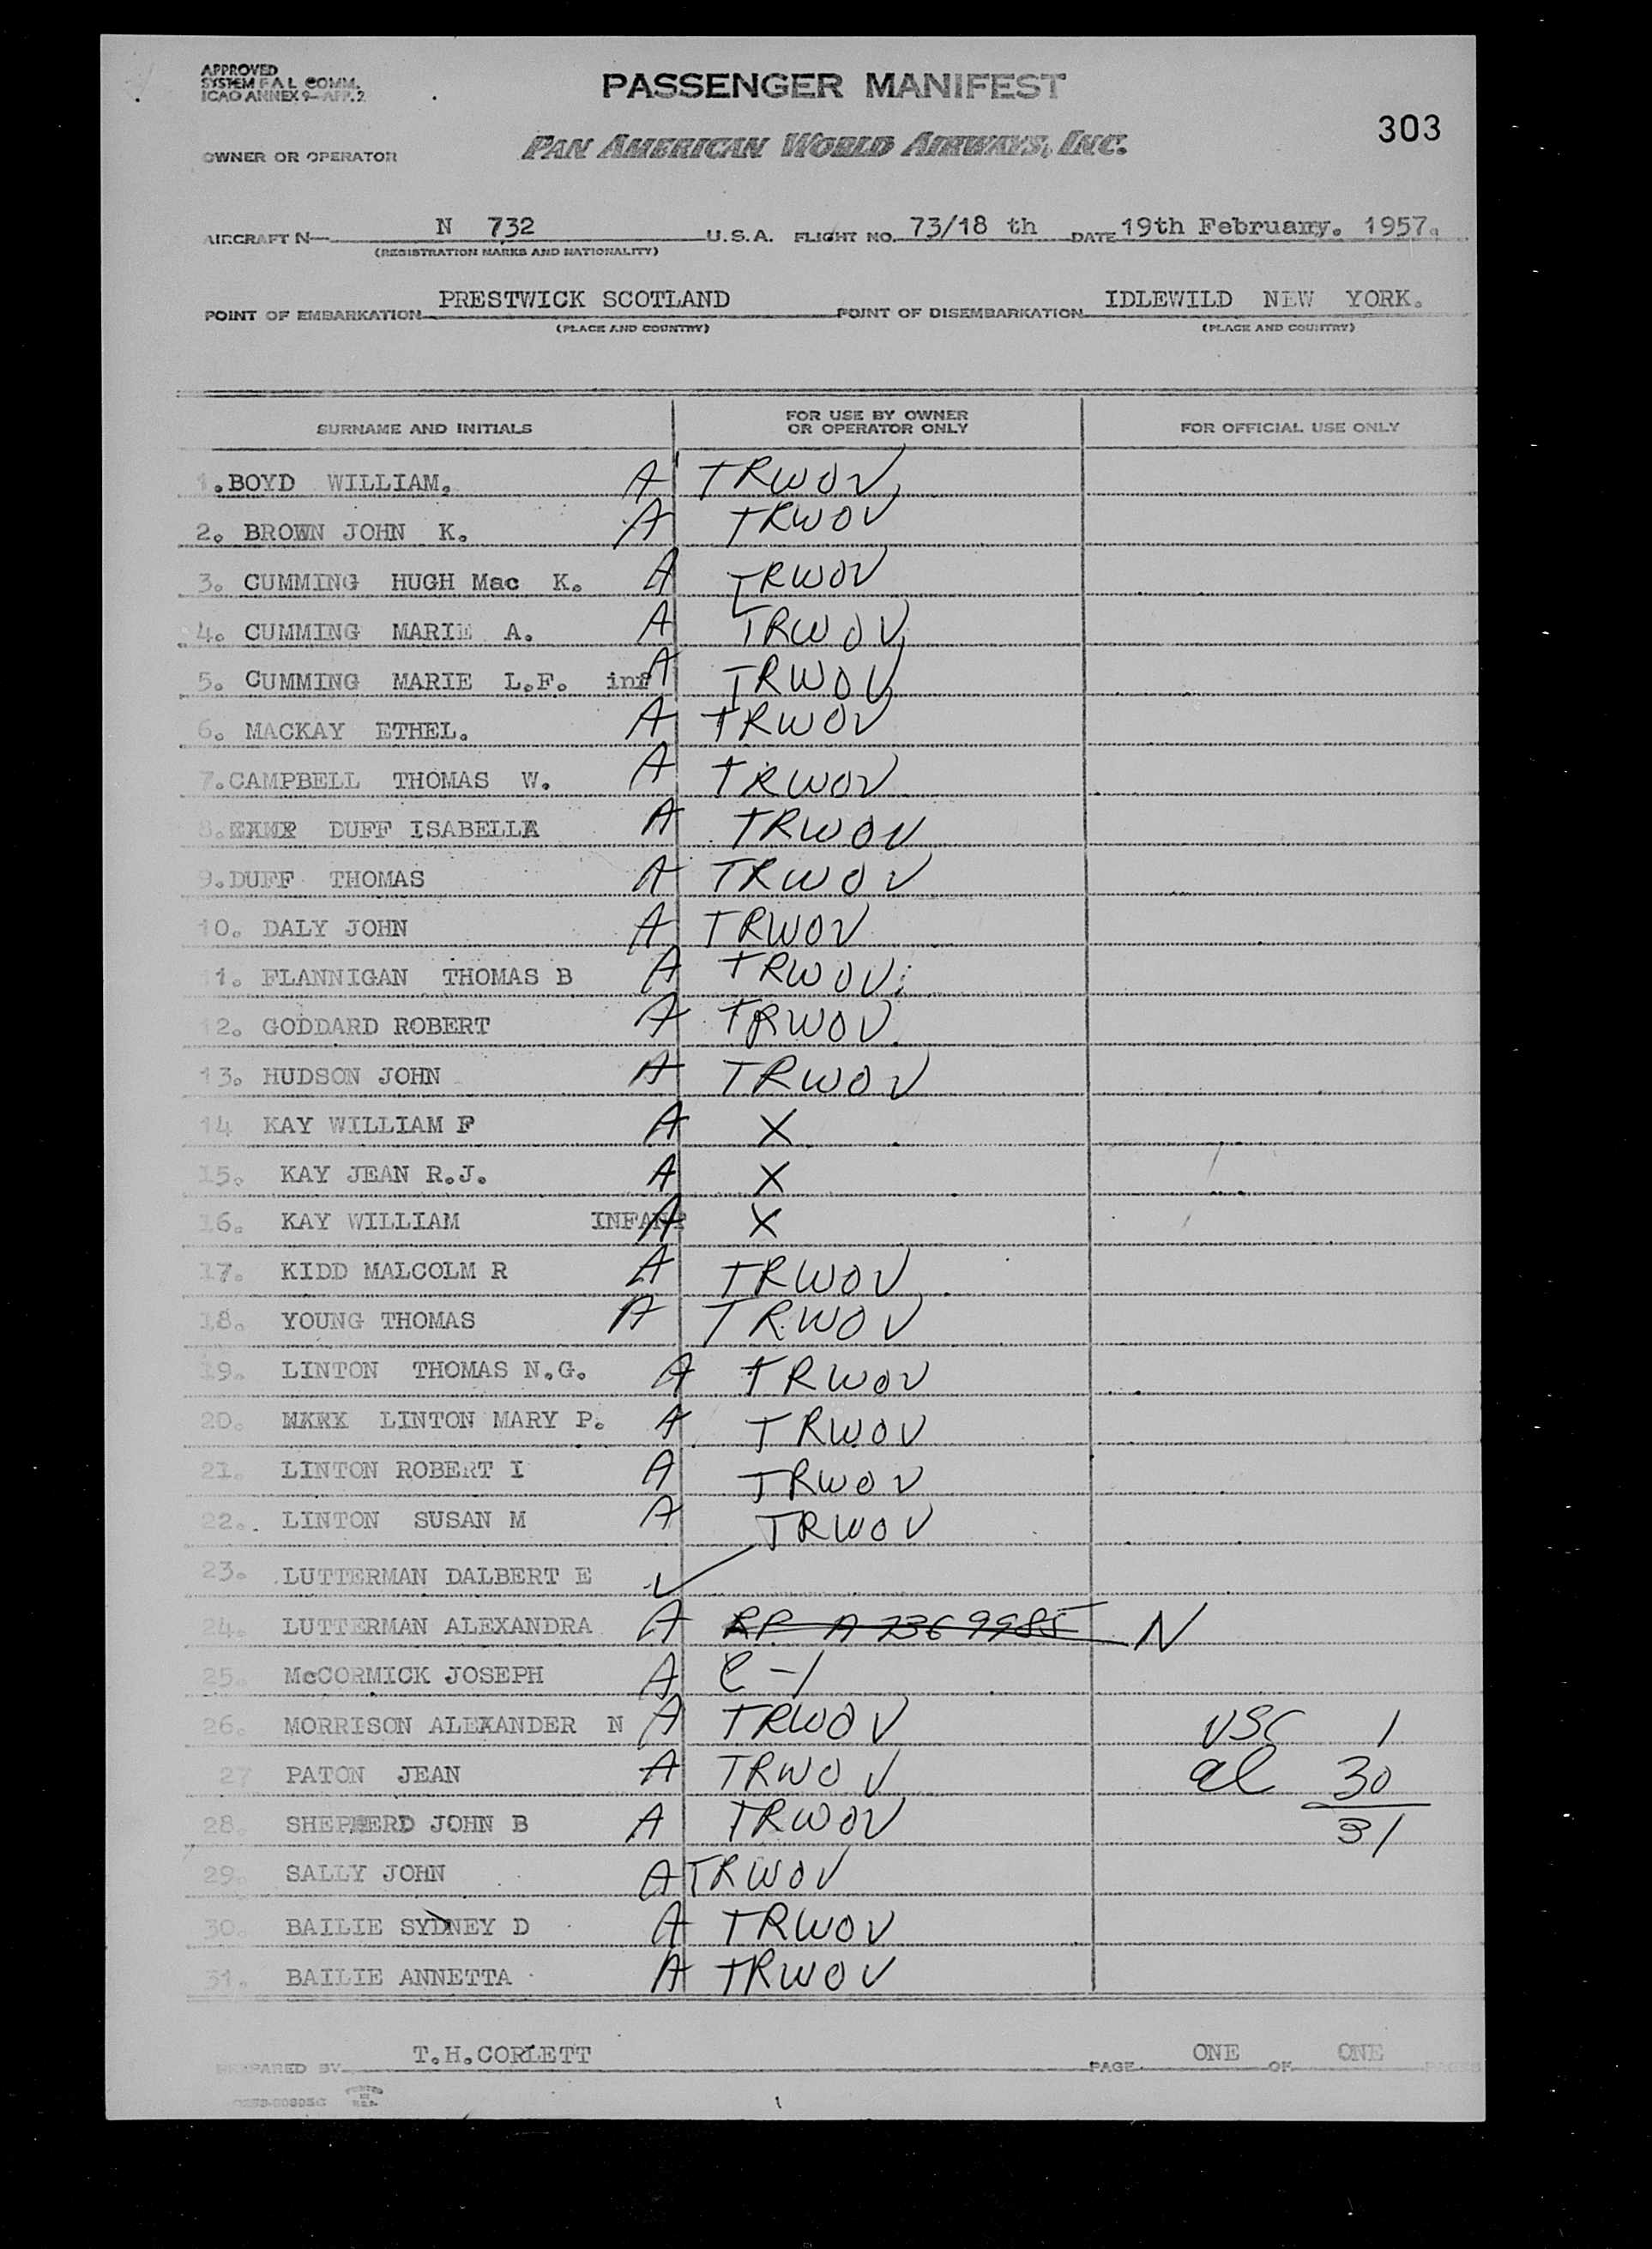 APPROVED
SYSTEM F A L COMM.
ICAO ANNEX 9-APP.2
PASSENGER MANIFEST
303
OWNER OR OPERATOR PAN AMERICAN WORLD AIRWAYS, INC.
AIRCRAFT N N 732 U.S.A. FLIGHT NO. 73/18 th DATE 19th February. 1957.
(REGISTRATION MARKS AND NATIONALITY)
POINT OF EMBARKATION PRESTWICK SCOTLAND POINT OF DISEMBARKATION IDLEWILD NEW YORK.
(PLACE AND COUNTRY) (PLACE AND COUNTRY)
SURNAME AND INITIALS FOR USE BY OWNER OR OPERATOR ONLY FOR OFFICIAL USE ONLY
1. BOYD WILLIAM, A TRWOV
2. BROWN JOHN K. A TRWOV
3. CUMMING HUGH Mac K. A TRWOV
4. CUMMING MARIE A. A TRWOV
5. CUMMING MARIE L.F. inf A TRWOV
6. MACKAY ETHEL. A TRWOV
7. CAMPBELL THOMAS W. A TRWOV
8. DUFF ISABELLA A TRWOV
9. DUFF THOMAS A TRWOV
10. DALY JOHN A TRWOV
11. FLANNIGAN THOMAS B A TRWOV
12. GODDARD ROBERT A TRWOV
13. HUDSON JOHN A TRWOV
14 KAY WILLIAM F A X
15. KAY JEAN R.J. A X
16. KAY WILLIAM INFANT A X
17. KIDD MALCOLM R A TRWOV
18. YOUNG THOMAS A TRWOV
19. LINTON THOMAS N.G. A TRWOV
20. LINTON MARY P. A TRWOV
21. LINTON ROBERT I A TRWOV
22. LINTON SUSAN M A TRWOV
23. LUTTERMAN DALBERT E ✓
24. LUTTERMAN ALEXANDRA A RP A 7369985 N
25. McCORMICK JOSEPH A C-1
26. MORRISON ALEXANDER N A TRWOV USC 1
27 PATON JEAN A TRWOV al 30
28. SHEPHERD JOHN B A TRWOV 31
29. SALLY JOHN A TRWOV
30. BAILIE SYDNEY D A TRWOV
31. BAILIE ANNETTA A TRWOV
PREPARED BY T.H.CORLETT PAGE ONE OF ONE PAGES